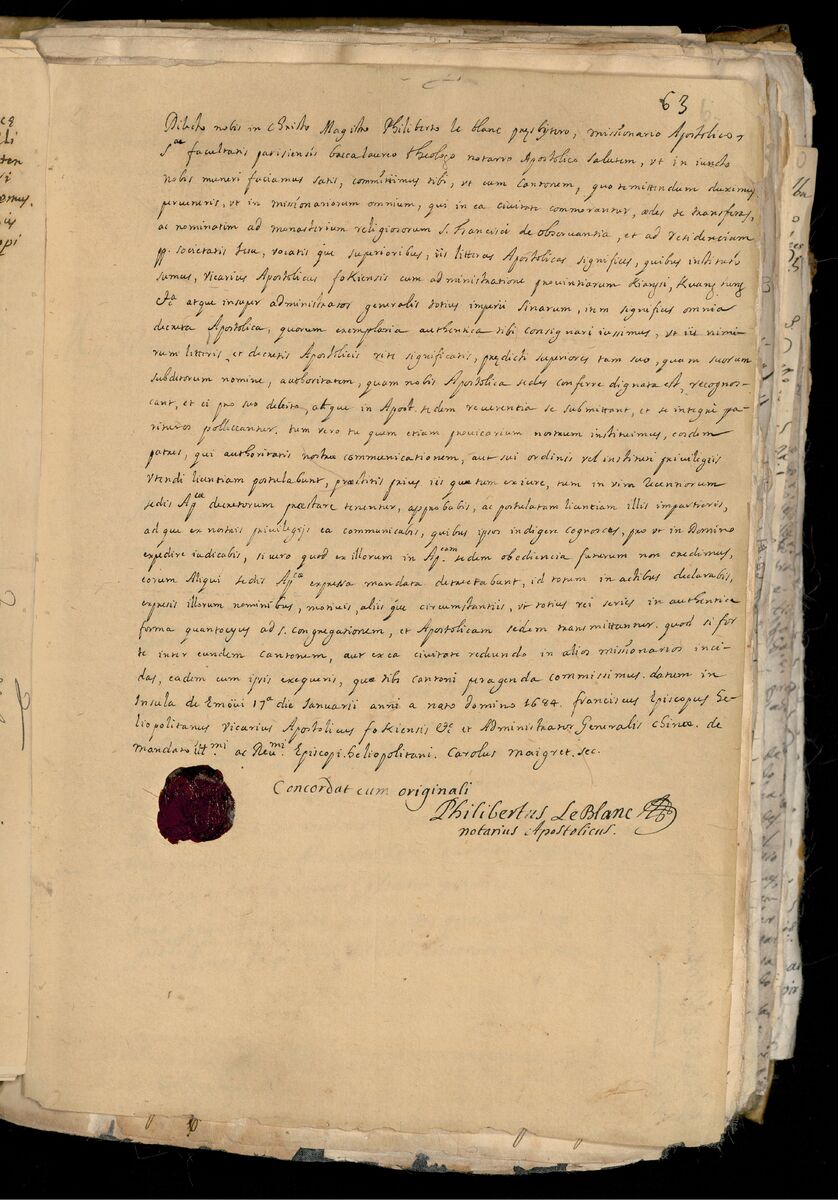 63
Dilecto nobis in Christo Magistro Philiberto le blanc pręsbÿtero, missionario Apostolico,
Sae facultatis parisiensis baccalaureo theologo notario Apostolico salutem, vt in iuncto
nobis muneri faciamus satis, committimus tibi, vt cum Cantonem, quo te mittendum duximus
perueneris, vt in missionariorum omnium, qui in ea ciuitate commorantur, ædes te transferas,
ac nominatim ad monasterium religiosorum S. Francisci de obseruantia, et ad residenciam
pp. societatis Iesu, vocatis que superioribus, iis litteras Apostolicas significes, quibus instituti
sumus, vicarius Apostolicus fokiensis cum administratione prouintiarum Kiamsi, Kuang tung
&a atque insuper administrator generalis totius imperii Sinarum, item significes omnia
decreta Apostolica, quorum exemplaria authentica tibi consignari iussimus, vt iis nimi
rum litteris, et decretis Apostolicis rite significatis, prędicti superiores tam suo, quam suorum
subditorum nomine, authoritatem, quam nobis Apostolica sedes conferre dignata est, recognos-
cant, et ei pro suo debita, atque in Apost. sedem reuerentia se submittant, et se integre pa-
rituros polliceantur. tum vero tu quem etiam prouicarium nostrum instituimus, eosdem
patres, qui authoritatis nostræ communicationem, aut sui ordinis vel instituti priuilegiis
vtendi licentiam postulabunt, præstitis prius iis quæ tum ex iure, tum in vim recentiorum
sedis Apcæ decretorum præstare tenentur, approbabis, ac postulatam licentiam illis impartieris,
ad que ex nostris priuilegijs ea communicabis, quibus ipsos indigere cognosces, pro vt in Domino
expedire iudicabis, si uero quod ex illorum in Ap.cam sedem obediencia futurum non credimus,
eorum aliqui sedis Apca expressa mandata detrectabunt, id totum in actibus declarabis,
expressis illorum nominibus, motiuis, aliis que circumstantiis, vt totius rei series in authentica
forma quantocyus ad S. congregationem, et Apostolicam sedem transmittantur. quod si for
te inter eundem Cantonem, aut ex ea ciuitate redundo in alios missionarios inci-
das, eadem cum ipsis exequeris, quæ tibi Cantoni peragenda commissimus. datum in
Insula de Emöüi 17a die Ianuarii anni a nato domino 1684. franciscus Episcopus he-
liopolitanus vicarius Apostolicus fokiensis &c et Administrator Generalis Chinæ. de
mandato illmi ac Reumi Episcopi heliopolitani. Carolus maigret. sec.
Concordat cum originali
Philibertus Le Blanc
notarius Apostolicus.